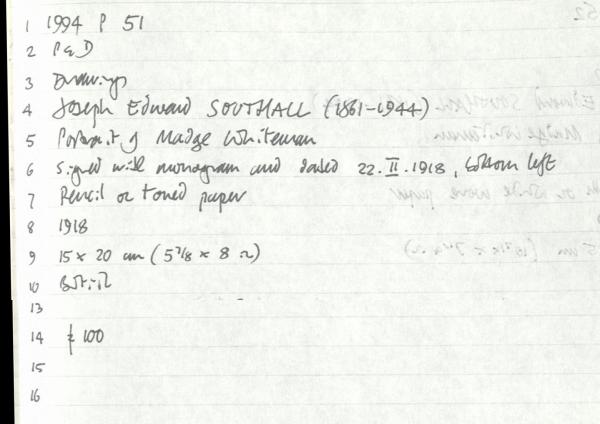 1 1994 P 51
2 P&D
3 Drawings
4 Joseph Edward SOUTHALL (1861-1944)
5 Portrait of Madge Whiteman
6 Signed with monogram and dated 22.II.1918, bottom left
7 Pencil on toned paper
8 1918
9 15 x 20 cm (5 7/8 x 8 in)
10 British
13
14 £ 100
15
16